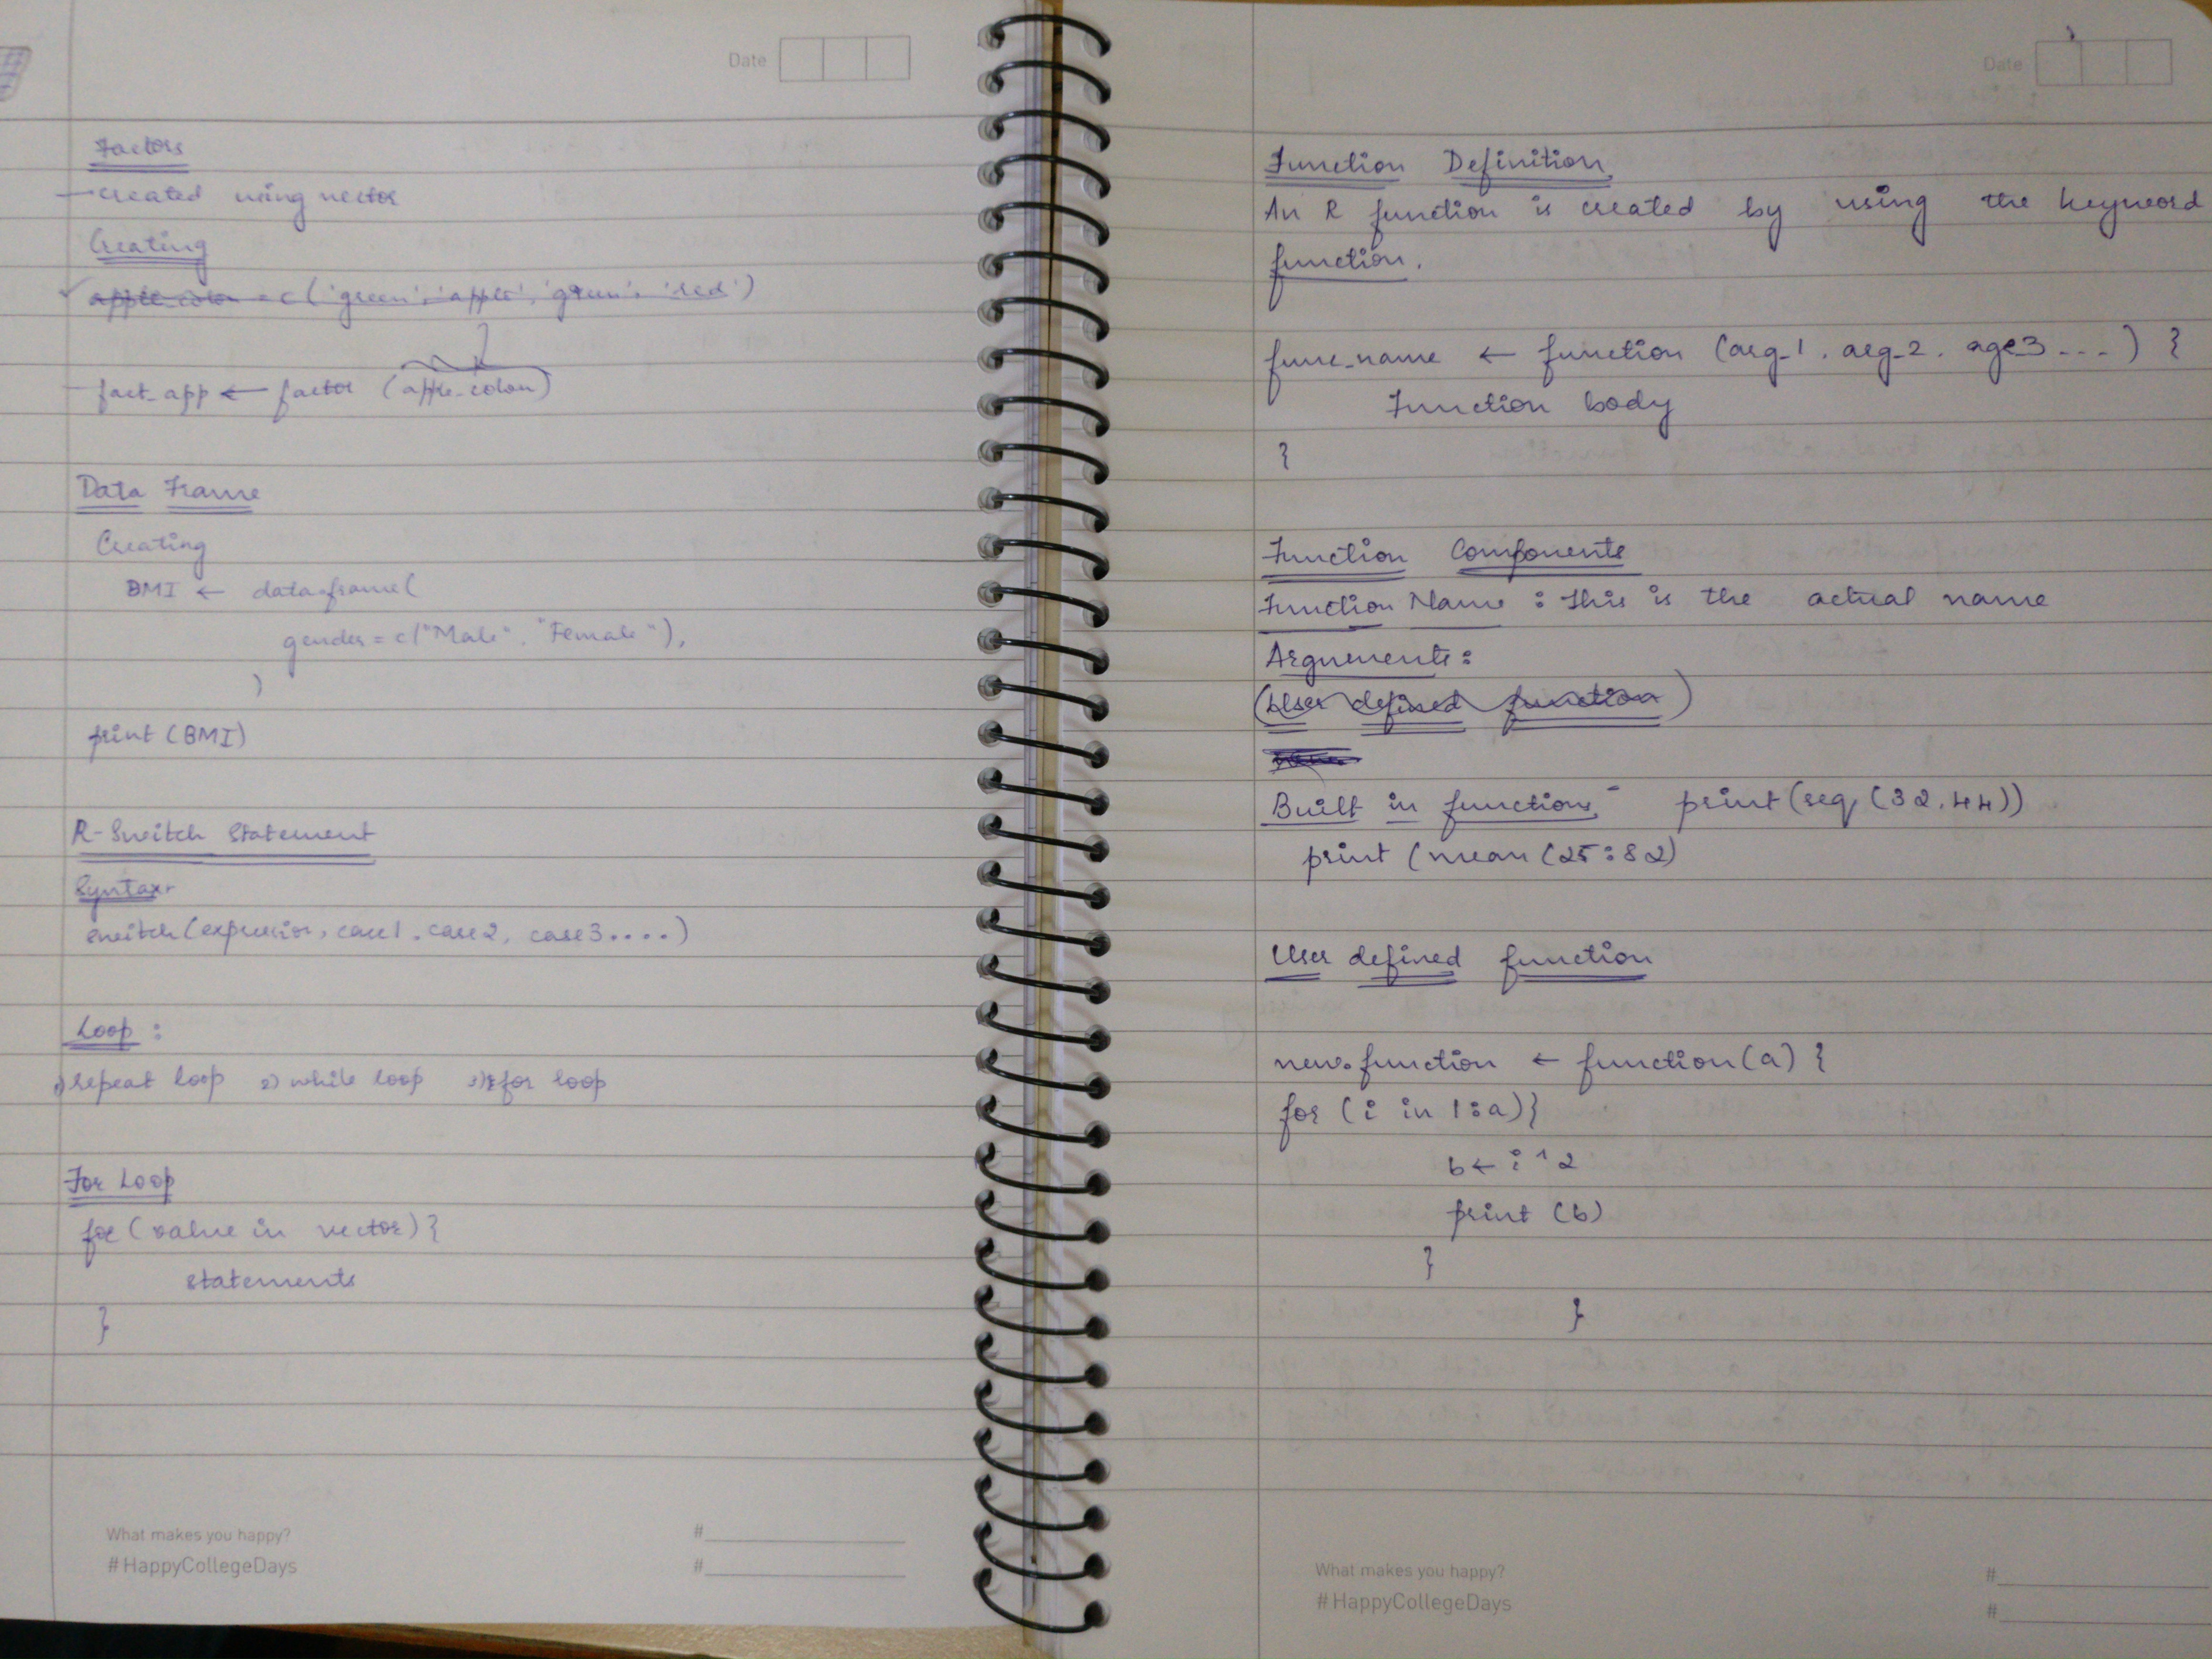 Date
Factors
- created using vector
Creating
apple_colon = c('green', 'apple', 'green', 'red')
- fact_app ← factor (apple_colon)
Data Frame
Creating
BMI ← data.frame(
gender = c("Male", "Female"),
)
print (BMI)
R-Switch Statement
Syntax-
switch (expression, case1, case2, case3....)
Loop :
1) repeat loop 2) while loop 3) for loop
For Loop
for (value in vector) {
statements
}
What makes you happy?
#HappyCollegeDays
#
#
Date
Function Definition
An R function is created by using the keyword
function.
func_name ← function (arg_1, arg_2, age3...) {
Function body
}
Function Components
Function Name : This is the actual name
Arguements :
(User defined function)
Built in functions - print (seq (32,44))
print (mean (25:82)
User defined function
new.function ← function (a) {
for (i in 1:a) {
b ← i^2
print (b)
}
}
What makes you happy?
#HappyCollegeDays
#
#